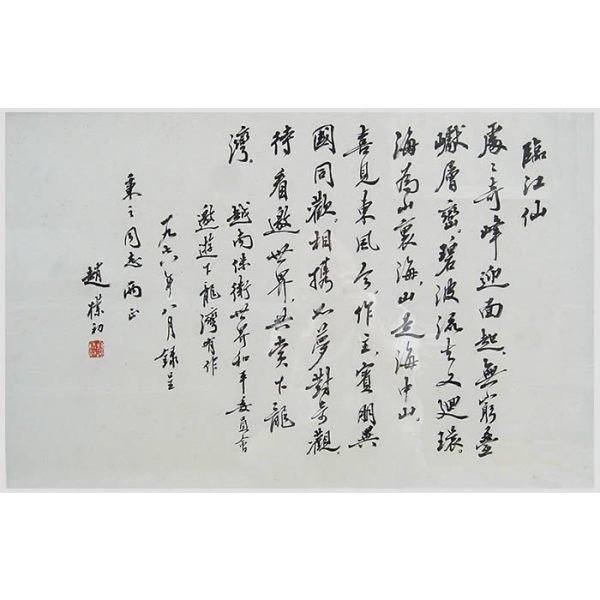 臨江仙
處々奇峰迎面起、無窮疊
巘層巒、碧波流去又迴環、
海為山裏海、山是海中山、
喜見東風今作主、賓朋異
國同歡、相攜如夢對奇觀、
待看邀世界、共賞下龍
灣、
越南保衛世界和平委員會
邀遊下龍灣有作
一九八年八月錄呈
之同志兩正
趙樸初